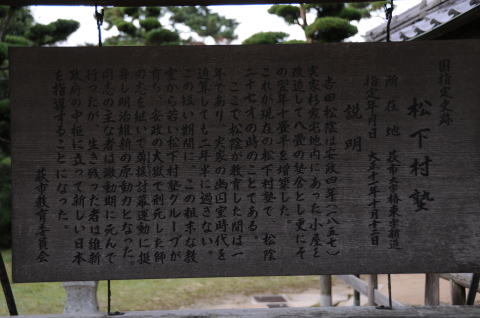 国指定史跡
松下村塾
所在地 萩市大字椿東新道
指定年月日 大正十一年十月十二日
説明
吉田松陰は安政四年(一八五七)
実家杉家宅地内にあった小屋を
改造して八畳の塾舎とし更にそ
の翌年十畳半を増築した。
これが現在の松下村塾で 松陰
二十七才の時のことである。
ここで松陰が教育した間は一
年であり、実家の幽囚室時代を
通算しても二年半に過ぎない。
この短い期間に、この粗末な教
室から若い松下村塾グループが
育ち、安政の大獄で刑死した師
の志を継いで討幕運動に挺
身し明治維新の原動力となった。
同志の主な者は激動期に死んで
行ったが、生き残った者は維新
政府の中枢に立って新しい日本
を指導することになった。
萩市教育委員会